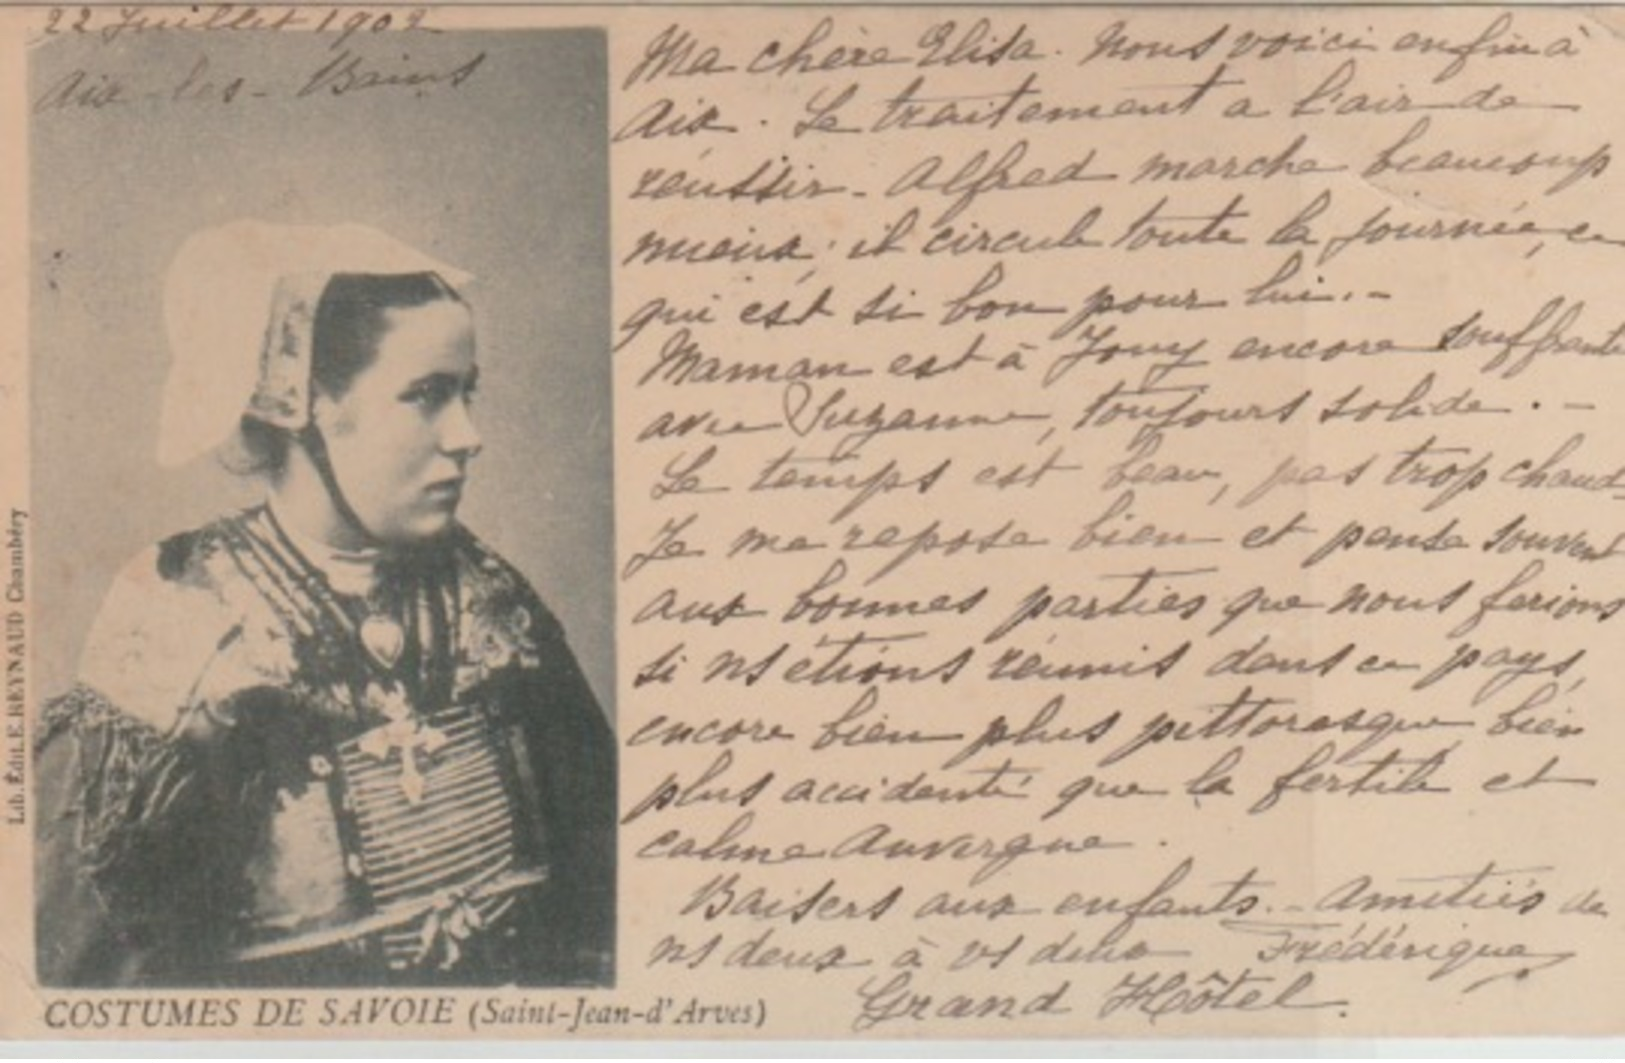 22 Juillet 1902
Aix-les-Bains
Ma chère Elisa. Nous voici enfin à
Aix. Le traitement a l'air de
réussir - Alfred marche beaucoup
mieux; il circule toute la journée, ce
qui est si bon pour lui. -
Maman est à Jouy encore souffrante
avec Suzanne, toujours solide. -
Le temps est beau, pas trop chaud.
Je me repose bien et pense souvent
aux bonnes parties que nous ferions
si ns étions réunis dans ce pays,
encore bien plus pittoresque, bien
plus accidenté que la fertile et
calme Auvergne.
Baisers aux enfants. - Amitiés de
ns deux à vs deux Frédérique
Grand Hôtel.
COSTUMES DE SAVOIE (Saint-Jean-d'Arves)
Lib. Édit. E. REYNAUD Chambéry